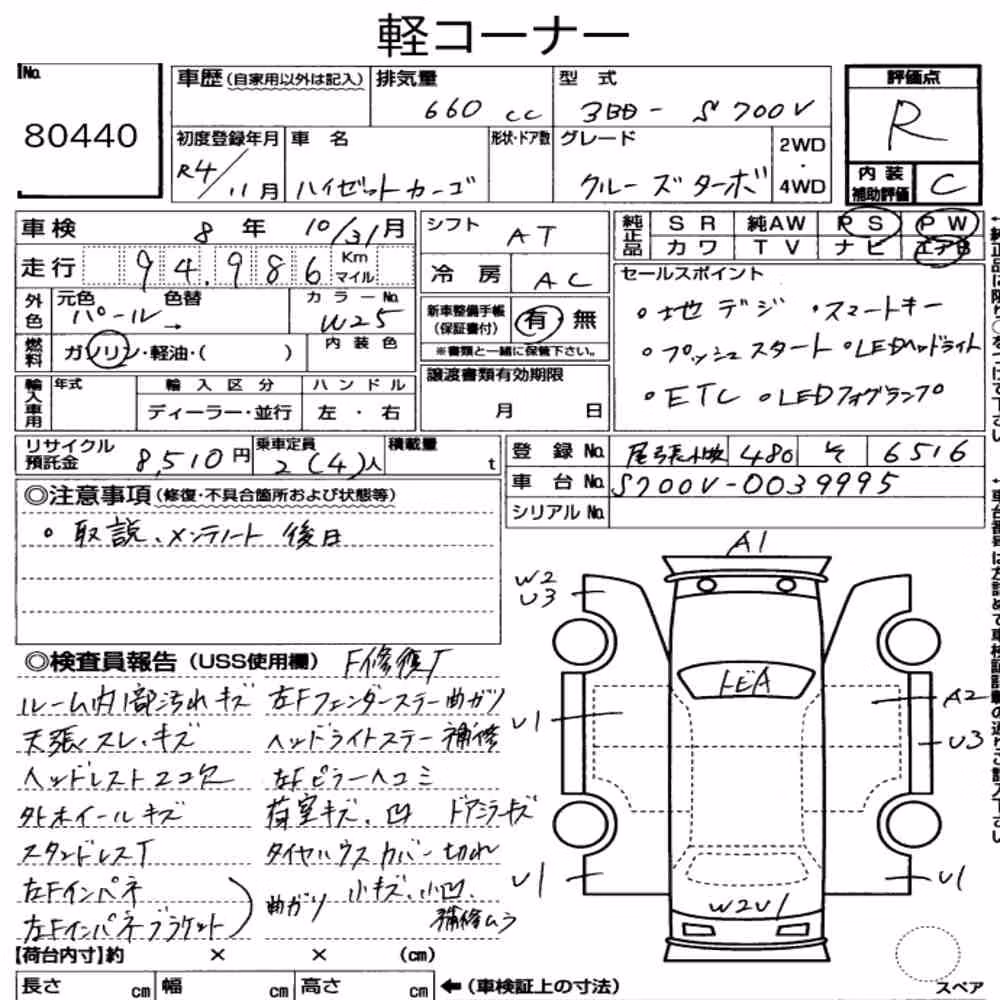 軽コーナー
No.
80440
車歴(自家用以外は記入)
排気量
660 cc
型 式
3BD - S700V
評価点
R
初度登録年月
R4/11月
車 名
ハイゼットカーゴ
形状・ドア数
グレード
クルーズターボ
2WD
・
4WD
内 装
補助評価
C
車検
8 年 10/31月
シフト
AT
純正品
SR 純AW PS PW
カワ TV ナビ エアB
走行
94,986
Km
マイル
冷 房
AC
セールスポイント
・地デジ ・スマートキー
・プッシュスタート ・LEDヘッドライト
・ETC ・LEDフォグランプ
外色
元色 色替
パール →
カラーNo.
W25
新車整備手帳
(保証書付)
有・無
※書類と一緒に保管下さい。
燃料
ガソリン・軽油・( )
内 装 色
輸入車用
年式
輸 入 区 分
ディーラー・並行
ハ ン ド ル
左 ・ 右
譲渡書類有効期限
月 日
リサイクル
預託金
8,510円
乗車定員
2(4)人
積載量
t
登 録 No.
尾張小牧 480 そ 6516
車 台 No.
S700V-0039995
シリアル No.
◎注意事項(修復・不具合箇所および状態等)
・取説、メンテノート 後日
◎検査員報告(USS使用欄) F修復T
ルーム内部汚れキズ
天張スレ・キズ
ヘッドレスト2コ欠
外ホイールキズ
スタンドレスT
左Fインパネ
左Fインパネブラケット
曲ガリ
左Fフェンダーステー曲ガリ
ヘッドライトステー補修
左Fピラーヘコミ
荷室キズ、凹 ドアミラーキズ
タイヤハウスカバー切れ
小キズ、小凹、
補修ムラ
A1
W2
U3
FGA
U1
A2
U3
U1
U1
W2U1
【荷台内寸】約 × × (cm)
長さ cm 幅 cm 高さ cm
←(車検証上の寸法)
スペア